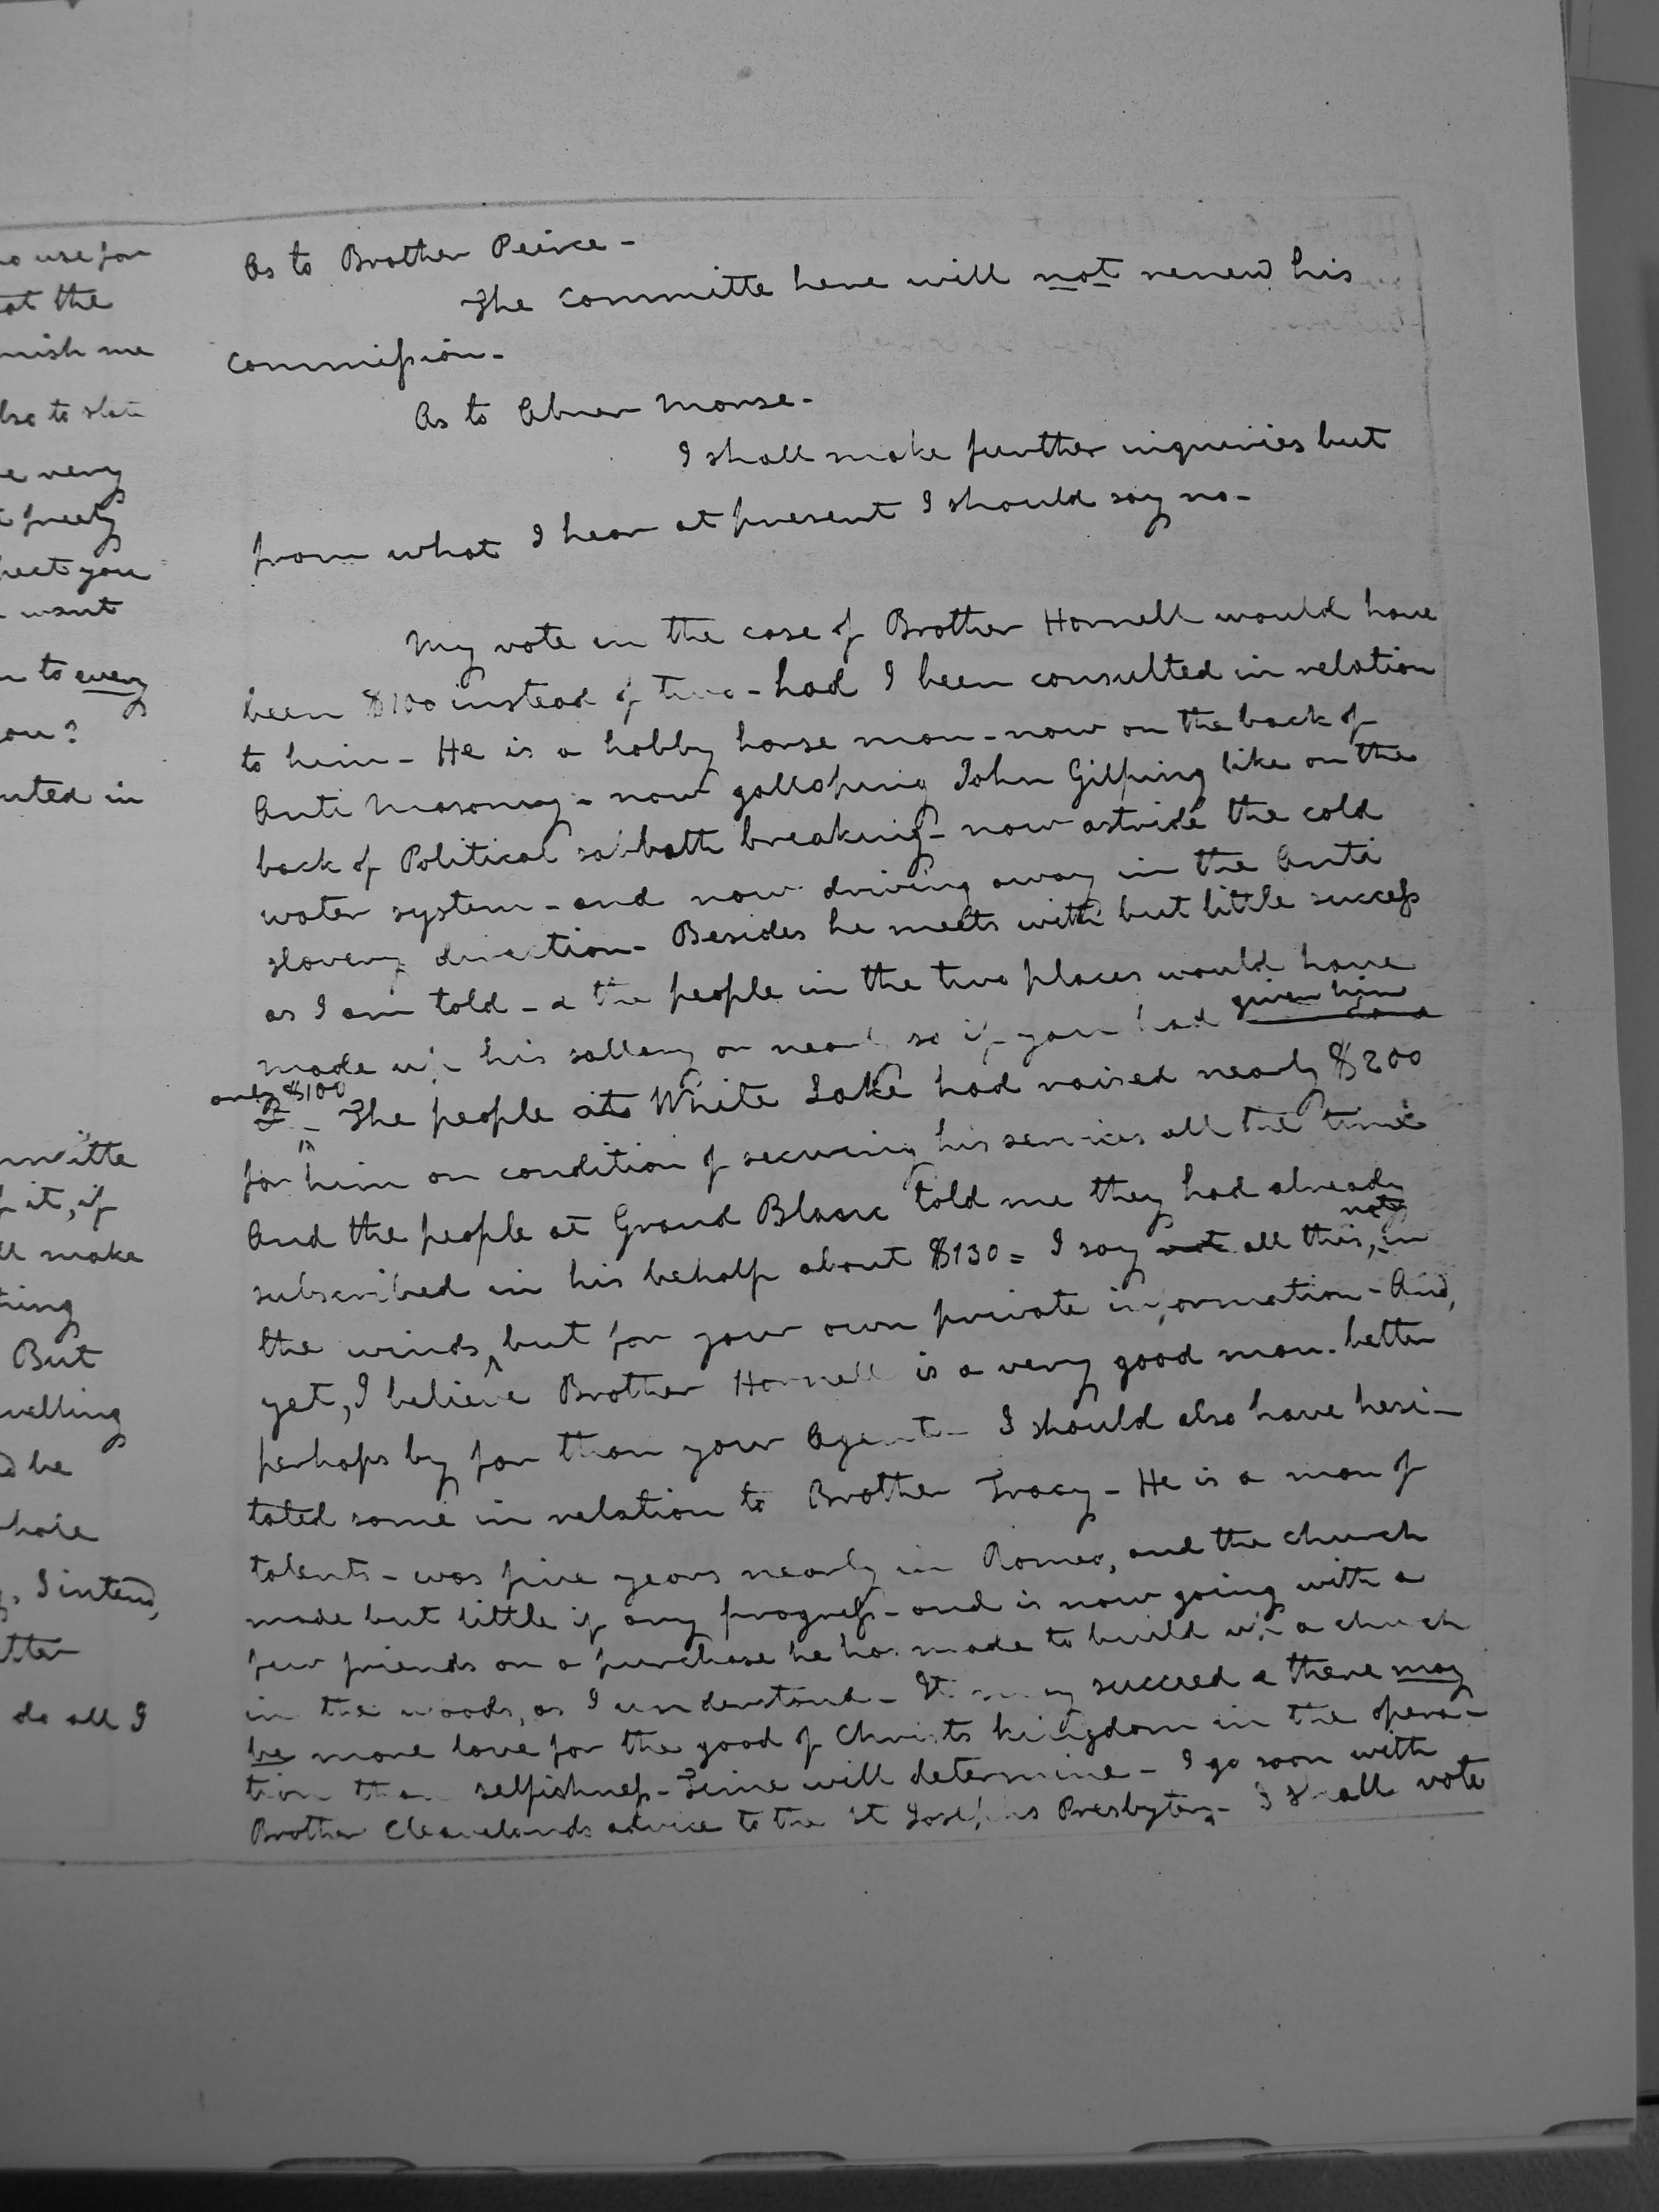 o use for
at the
nish me
lso to state
e very
freely
pect you
want
n to every
ou?
nted in
mmitte
f it, if
ll make
hing
But
velling
d be
whole
I intend,
tter
do all I
As to Brother Peirce-
The Committe here will not renew his
commission-
As to Abner Morse-
I shall make further inquiries but
from what I hear at present I should say no-
My vote in the case of Brother Hornell would have
been $100 instead of two - had I been consulted in relation
to him - He is a hobby horse man - now on the back of
Anti Masonry - now galloping John Gilping like on the
back of Political sabbath breaking - now astride the cold
water system - and now driving away in the Anti
slavery direction - Besides he meets with but little success
as I am told - & the people in the two places would have
made up his sallery or nearly so if you had given him
only $100 - The people at White Lake had raised nearly $200
for him on condition of securing his services all the time
And the people at Grand Blanc told me they had already
subscribed in his behalf about $130 = I say not all this, not in
the winds, but for your own private information - And,
yet, I believe Brother Hornell is a very good man. better
perhaps by far than your Agent - I should also have hesi-
tated some in relation to Brother Tracy - He is a man of
talents - was five years nearly in Romeo, and the church
made but little if any progress - and is now going with a
few friends on a purchase he has made to build up a church
in the woods, as I understand - It may succeed & there may
be more love for the good of Christs kingdom in the opera-
tion than selfishness - Time will determine - I go soon with
Brother Cleavelands advice to the St Josephs Presbytery - I shall vote